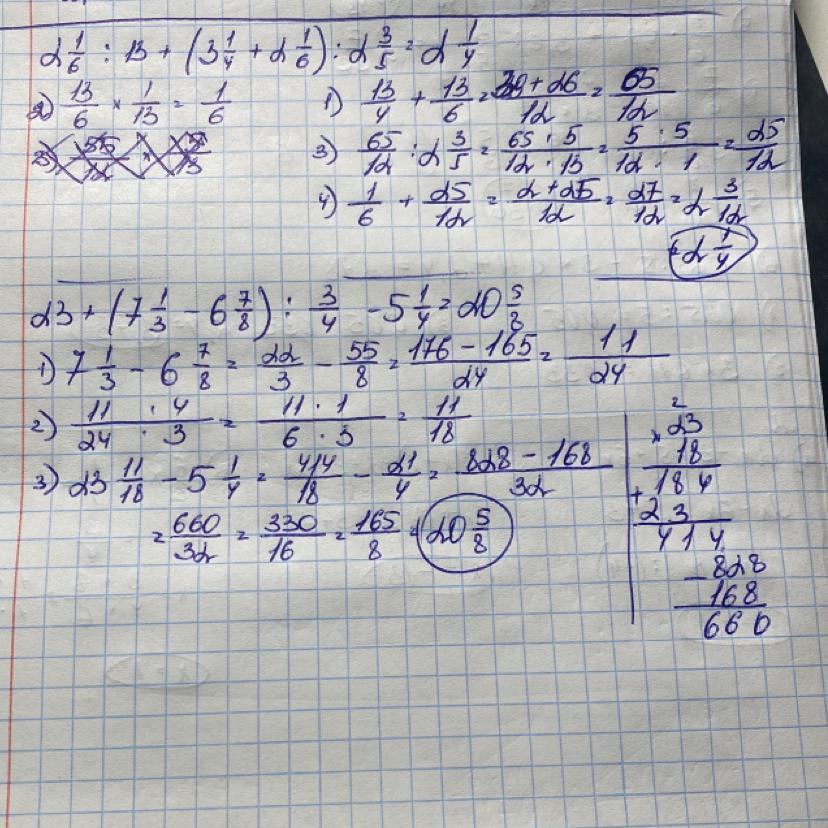 2 1/6 : 13 + (3 1/4 + 2 1/6) : 2 3/5 = 2 1/4
2) 13/6 × 1/13 = 1/6
1) 13/4 + 13/6 = 39+26/12 = 65/12
3) 65/12 : 2 3/5 = 65·5/12·13 = 5·5/12·1 = 25/12
4) 1/6 + 25/12 = 2+25/12 = 27/12 = 2 3/12
= 2 1/4
23 + (7 1/3 - 6 7/8) : 3/4 - 5 1/4 = 20 5/8
1) 7 1/3 - 6 7/8 = 22/3 - 55/8 = 176-165/24 = 11/24
2) 11·4/24·3 = 11·1/6·3 = 11/18
3) 23 11/18 - 5 1/4 = 414/18 - 21/4 = 828-168/32
= 660/32 = 330/16 = 165/8 = 20 5/8
2
×23
18
+184
23
414
-828
168
660